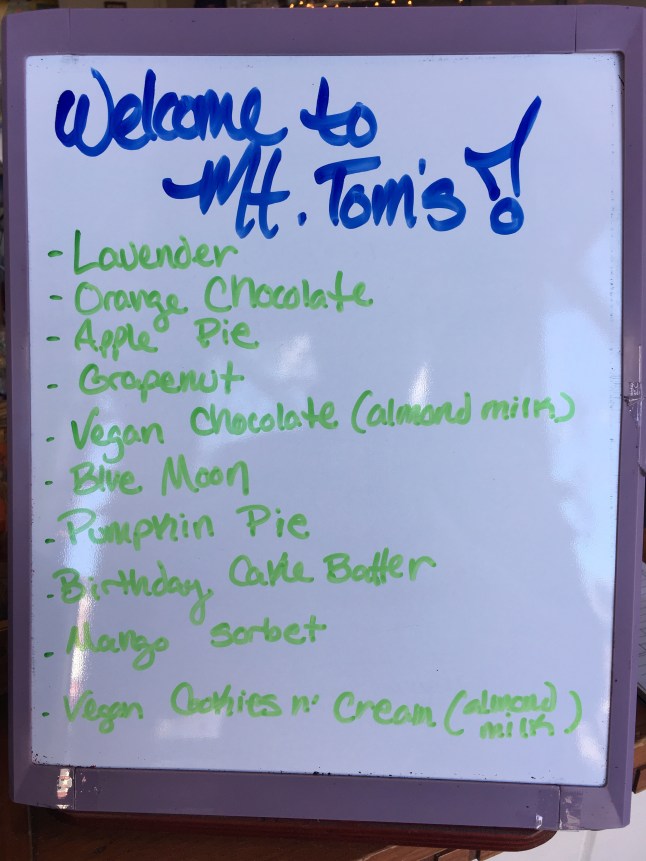 Welcome to
Mt. Tom's!
- Lavender
- Orange Chocolate
- Apple Pie
- Grapenut
- Vegan Chocolate (almond milk)
- Blue Moon
- Pumpkin Pie
- Birthday Cake Batter
- Mango Sorbet
- Vegan Cookies n' Cream (almond
milk)